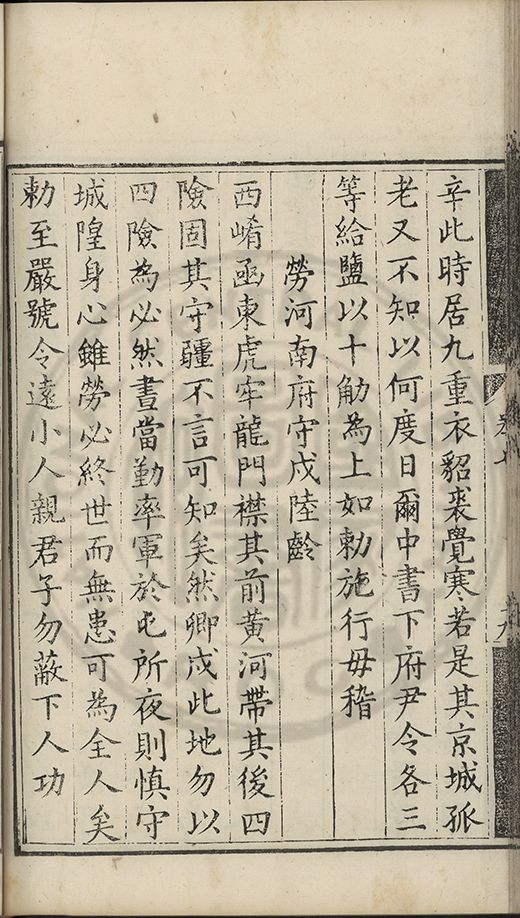 辛此時居九重衣貂裘覺寒若是其京城孤
老又不知以何度日爾中書下府尹令各三
等給鹽以十觔為上如勅施行毋稽
勞河南府守戍陸齡
西崤函東虎牢龍門襟其前黃河帶其後四
險固其守疆不言可知矣然卿戍此地勿以
四險為必然晝當勤率軍於屯所夜則慎守
城隍身心雖勞必終世而無患可為全人矣
勅至嚴號令遠小人親君子勿蔽下人功
卷七